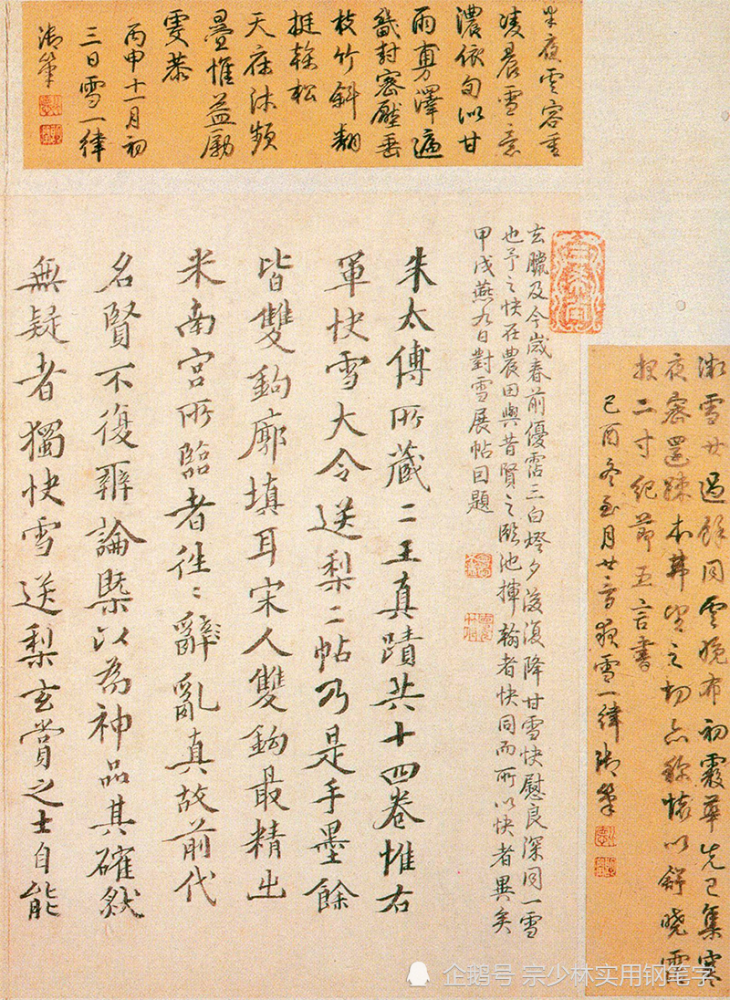 半夜雲容重
凌晨雪意
濃依旬似甘
雨旉澤遍
畿封密壓垂
枝竹斜翻
挺榦松
天庥沐頻
疊惟益勵
虔恭
丙申十一月初
三日雪一律
御筆
雪廿過餘同雲晚布初霰華先已集寒
夜密還疎本弗望之切亦稱懷以舒曉霑
二寸紀節五言書
己酉冬至月廿夜雪一律御筆
玄臘及今歲春前優霑三白燈夕後復降甘雪快慰良深同一雪
也予之快在農田與昔賢之臨池揮翰者快同而所以快者異矣
甲戌燕九日對雪展帖因題
朱太傅所藏二王真蹟共十四卷惟右
軍快雪大令送梨二帖乃是手墨餘
皆雙鉤廓填耳宋人雙鉤最精出
米南宮所臨者往〻辭亂真故前代
名賢不復辨論槩以為神品其確然
無疑者獨快雪送梨玄賞之士自能
企鹅号 宗少林实用钢笔字